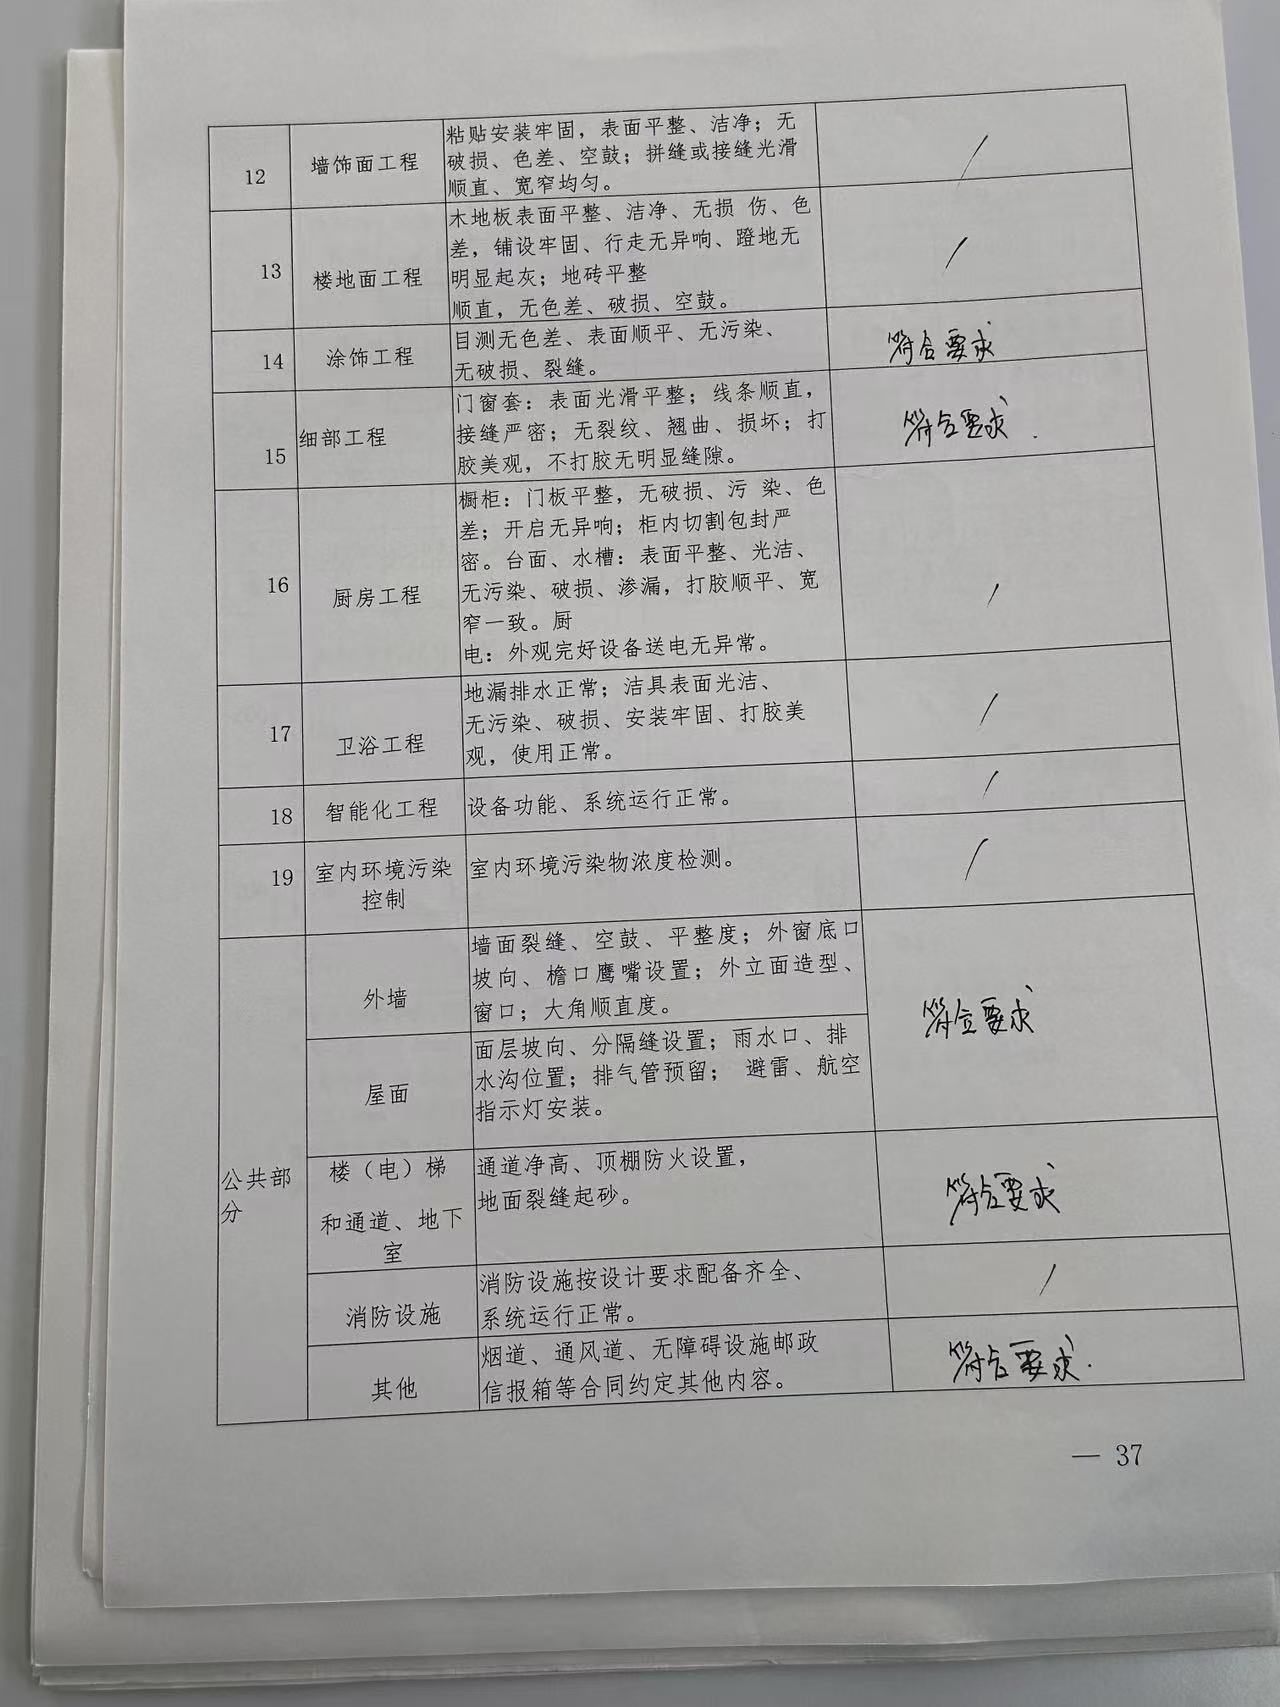 12
墙饰面工程
粘贴安装牢固，表面平整、洁净；无
破损、色差、空鼓；拼缝或接缝光滑
顺直、宽窄均匀。
/
13
楼地面工程
木地板表面平整、洁净、无损 伤、色
差，铺设牢固、行走无异响、蹬地无
明显起灰；地砖平整
顺直，无色差、破损、空鼓。
/
14
涂饰工程
目测无色差、表面顺平、无污染、
无破损、裂缝。
符合要求
15
细部工程
门窗套：表面光滑平整；线条顺直，
接缝严密；无裂纹、翘曲、损坏；打
胶美观，不打胶无明显缝隙。
符合要求.
16
厨房工程
橱柜：门板平整，无破损、污 染、色
差；开启无异响；柜内切割包封严
密。台面、水槽：表面平整、光洁、
无污染、破损、渗漏，打胶顺平、宽
窄一致。厨
电：外观完好设备送电无异常。
/
17
卫浴工程
地漏排水正常；洁具表面光洁、
无污染、破损、安装牢固、打胶美
观，使用正常。
/
18
智能化工程
设备功能、系统运行正常。
/
19
室内环境污染
控制
室内环境污染物浓度检测。
/
公共部
分
外墙
墙面裂缝、空鼓、平整度；外窗底口
坡向、檐口鹰嘴设置；外立面造型、
窗口；大角顺直度。
符合要求
屋面
面层坡向、分隔缝设置；雨水口、排
水沟位置；排气管预留； 避雷、航空
指示灯安装。
楼（电）梯
和通道、地下
室
通道净高、顶棚防火设置，
地面裂缝起砂。
符合要求
消防设施
消防设施按设计要求配备齐全、
系统运行正常。
/
其他
烟道、通风道、无障碍设施邮政
信报箱等合同约定其他内容。
符合要求.
— 37